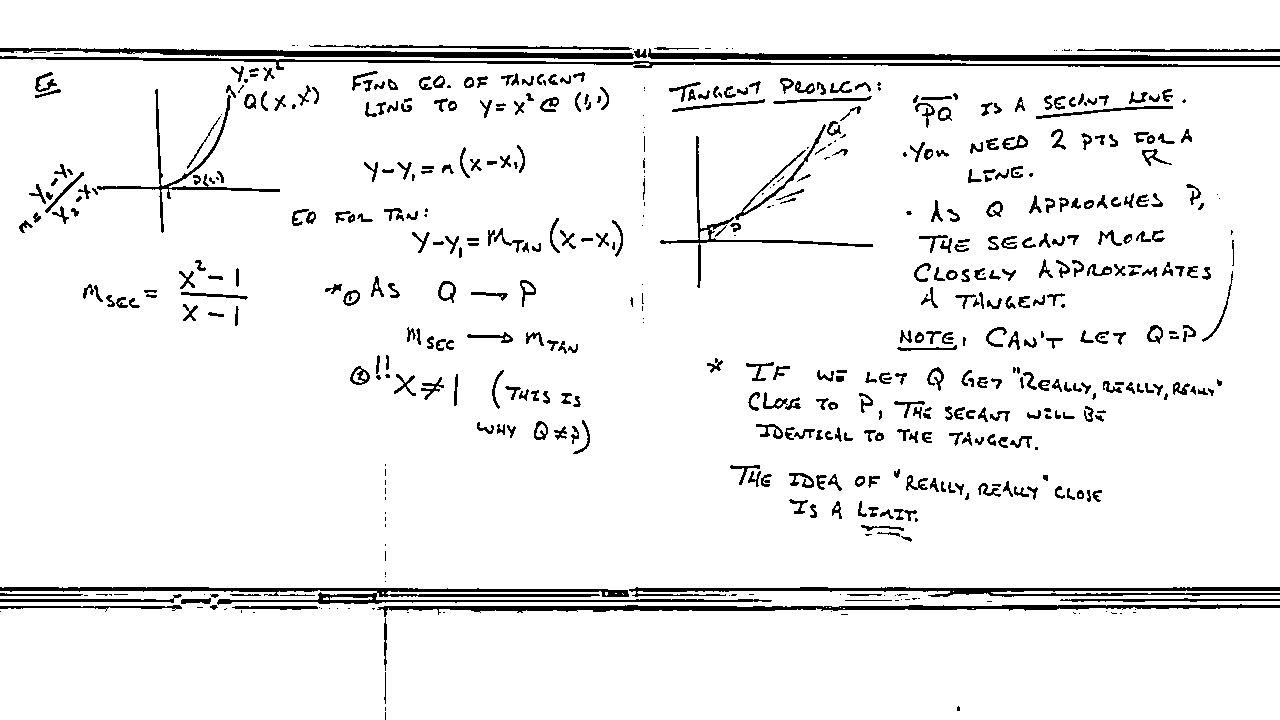 Ex
Y=X²
Q(X,X²)
P(1,1)
1
m=Y₂-Y₁/X₂-X₁
m_SEC = X²-1/X-1
FIND EQ. OF TANGENT
LINE TO Y=X² @ (1,1)
Y-Y₁=m(X-X₁)
EQ FOR TAN:
Y-Y₁=m_TAN(X-X₁)
*① AS Q → P
m_SEC → m_TAN
②!! X≠1 (THIS IS
WHY Q≠P)
TANGENT PROBLEM:
Q
P
"PQ" IS A SECANT LINE.
·YOU NEED 2 PTS FOR A
LINE.
· AS Q APPROACHES P,
THE SECANT MORE
CLOSELY APPROXIMATES
A TANGENT.
NOTE: CAN'T LET Q=P
* IF WE LET Q GET "REALLY, REALLY, REALLY"
CLOSE TO P, THE SECANT WILL BE
IDENTICAL TO THE TANGENT.
THE IDEA OF "REALLY, REALLY" CLOSE
IS A LIMIT.